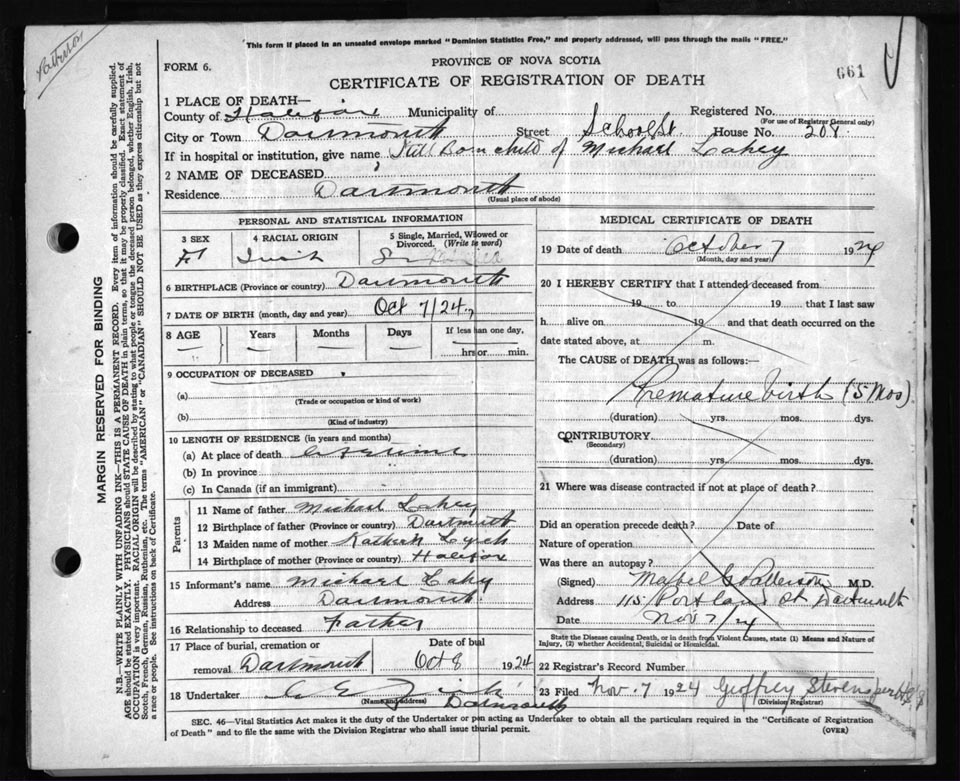 Patterson
This form if placed in an unsealed envelope marked "Dominion Statistics Free," and properly addressed, will pass through the mails "FREE."
PROVINCE OF NOVA SCOTIA
FORM 6.
CERTIFICATE OF REGISTRATION OF DEATH
661
MARGIN RESERVED FOR BINDING
N.B.—WRITE PLAINLY, WITH UNFADING INK—THIS IS A PERMANENT RECORD. Every item of information should be carefully supplied.
AGE should be stated EXACTLY. PHYSICIANS should STATE CAUSE OF DEATH in plain terms, so that it may be properly classified. Exact statement of
OCCUPATION is very important. RACIAL ORIGIN will be described by stating to what people or tongue the deceased person belonged, whether English, Irish,
Scotch, French, German, Russian, Ruthenian, etc. The terms "AMERICAN" or "CANADIAN" SHOULD NOT BE USED as they express citizenship but not
a race or people. See instructions on back of Certificate.
1 PLACE OF DEATH—
County of Halifax Municipality of Registered No.
(For use of Registrar General only)
City or Town Dartmouth Street School St. House No. 208
If in hospital or institution, give name Still Born child of Michael Lahey
2 NAME OF DECEASED
Residence Dartmouth
(Usual place of abode)
PERSONAL AND STATISTICAL INFORMATION
3 SEX 4 RACIAL ORIGIN 5 Single, Married, Widowed or Divorced. (Write the word)
F Irish
6 BIRTHPLACE (Province or country) Dartmouth
7 DATE OF BIRTH (month, day and year) Oct 7/24
8 AGE Years Months Days If less than one day,
hrs or min.
9 OCCUPATION OF DECEASED
(a)
(Trade or occupation or kind of work)
(b)
(Kind of industry)
10 LENGTH OF RESIDENCE (in years and months)
(a) At place of death
(b) In province
(c) In Canada (if an immigrant)
Parents
11 Name of father Michael Lahey
12 Birthplace of father (Province or country) Dartmouth
13 Maiden name of mother
14 Birthplace of mother (Province or country) Halifax
15 Informant's name Michael Lahey
Address Dartmouth
16 Relationship to deceased Father
17 Place of burial, cremation or Date of burial
removal Dartmouth Oct 8 1924
18 Undertaker
(Name and address) Dartmouth
MEDICAL CERTIFICATE OF DEATH
19 Date of death October 7 1924
(Month, day and year)
20 I HEREBY CERTIFY that I attended deceased from
19 to 19 that I last saw
h alive on 19 and that death occurred on the
date stated above, at m.
The CAUSE of DEATH was as follows:—
Premature birth (5 mos)
(duration) yrs. mos. dys.
CONTRIBUTORY
(Secondary)
(duration) yrs. mos. dys.
21 Where was disease contracted if not at place of death?
Did an operation precede death? Date of
Nature of operation
Was there an autopsy?
(Signed) Mabel G Patterson M.D.
Address 115 Portland St Dartmouth
Date Nov 7/24
State the Disease causing Death, or in death from Violent Causes, state (1) Means and Nature of
Injury, (2) whether Accidental, Suicidal or Homicidal.
22 Registrar's Record Number
23 Filed Nov. 7 1924 Geoffrey Stevens
(Division Registrar)
SEC. 46—Vital Statistics Act makes it the duty of the Undertaker or person acting as Undertaker to obtain all the particulars required in the "Certificate of Registration
of Death" and to file the same with the Division Registrar who shall issue burial permit. (OVER)